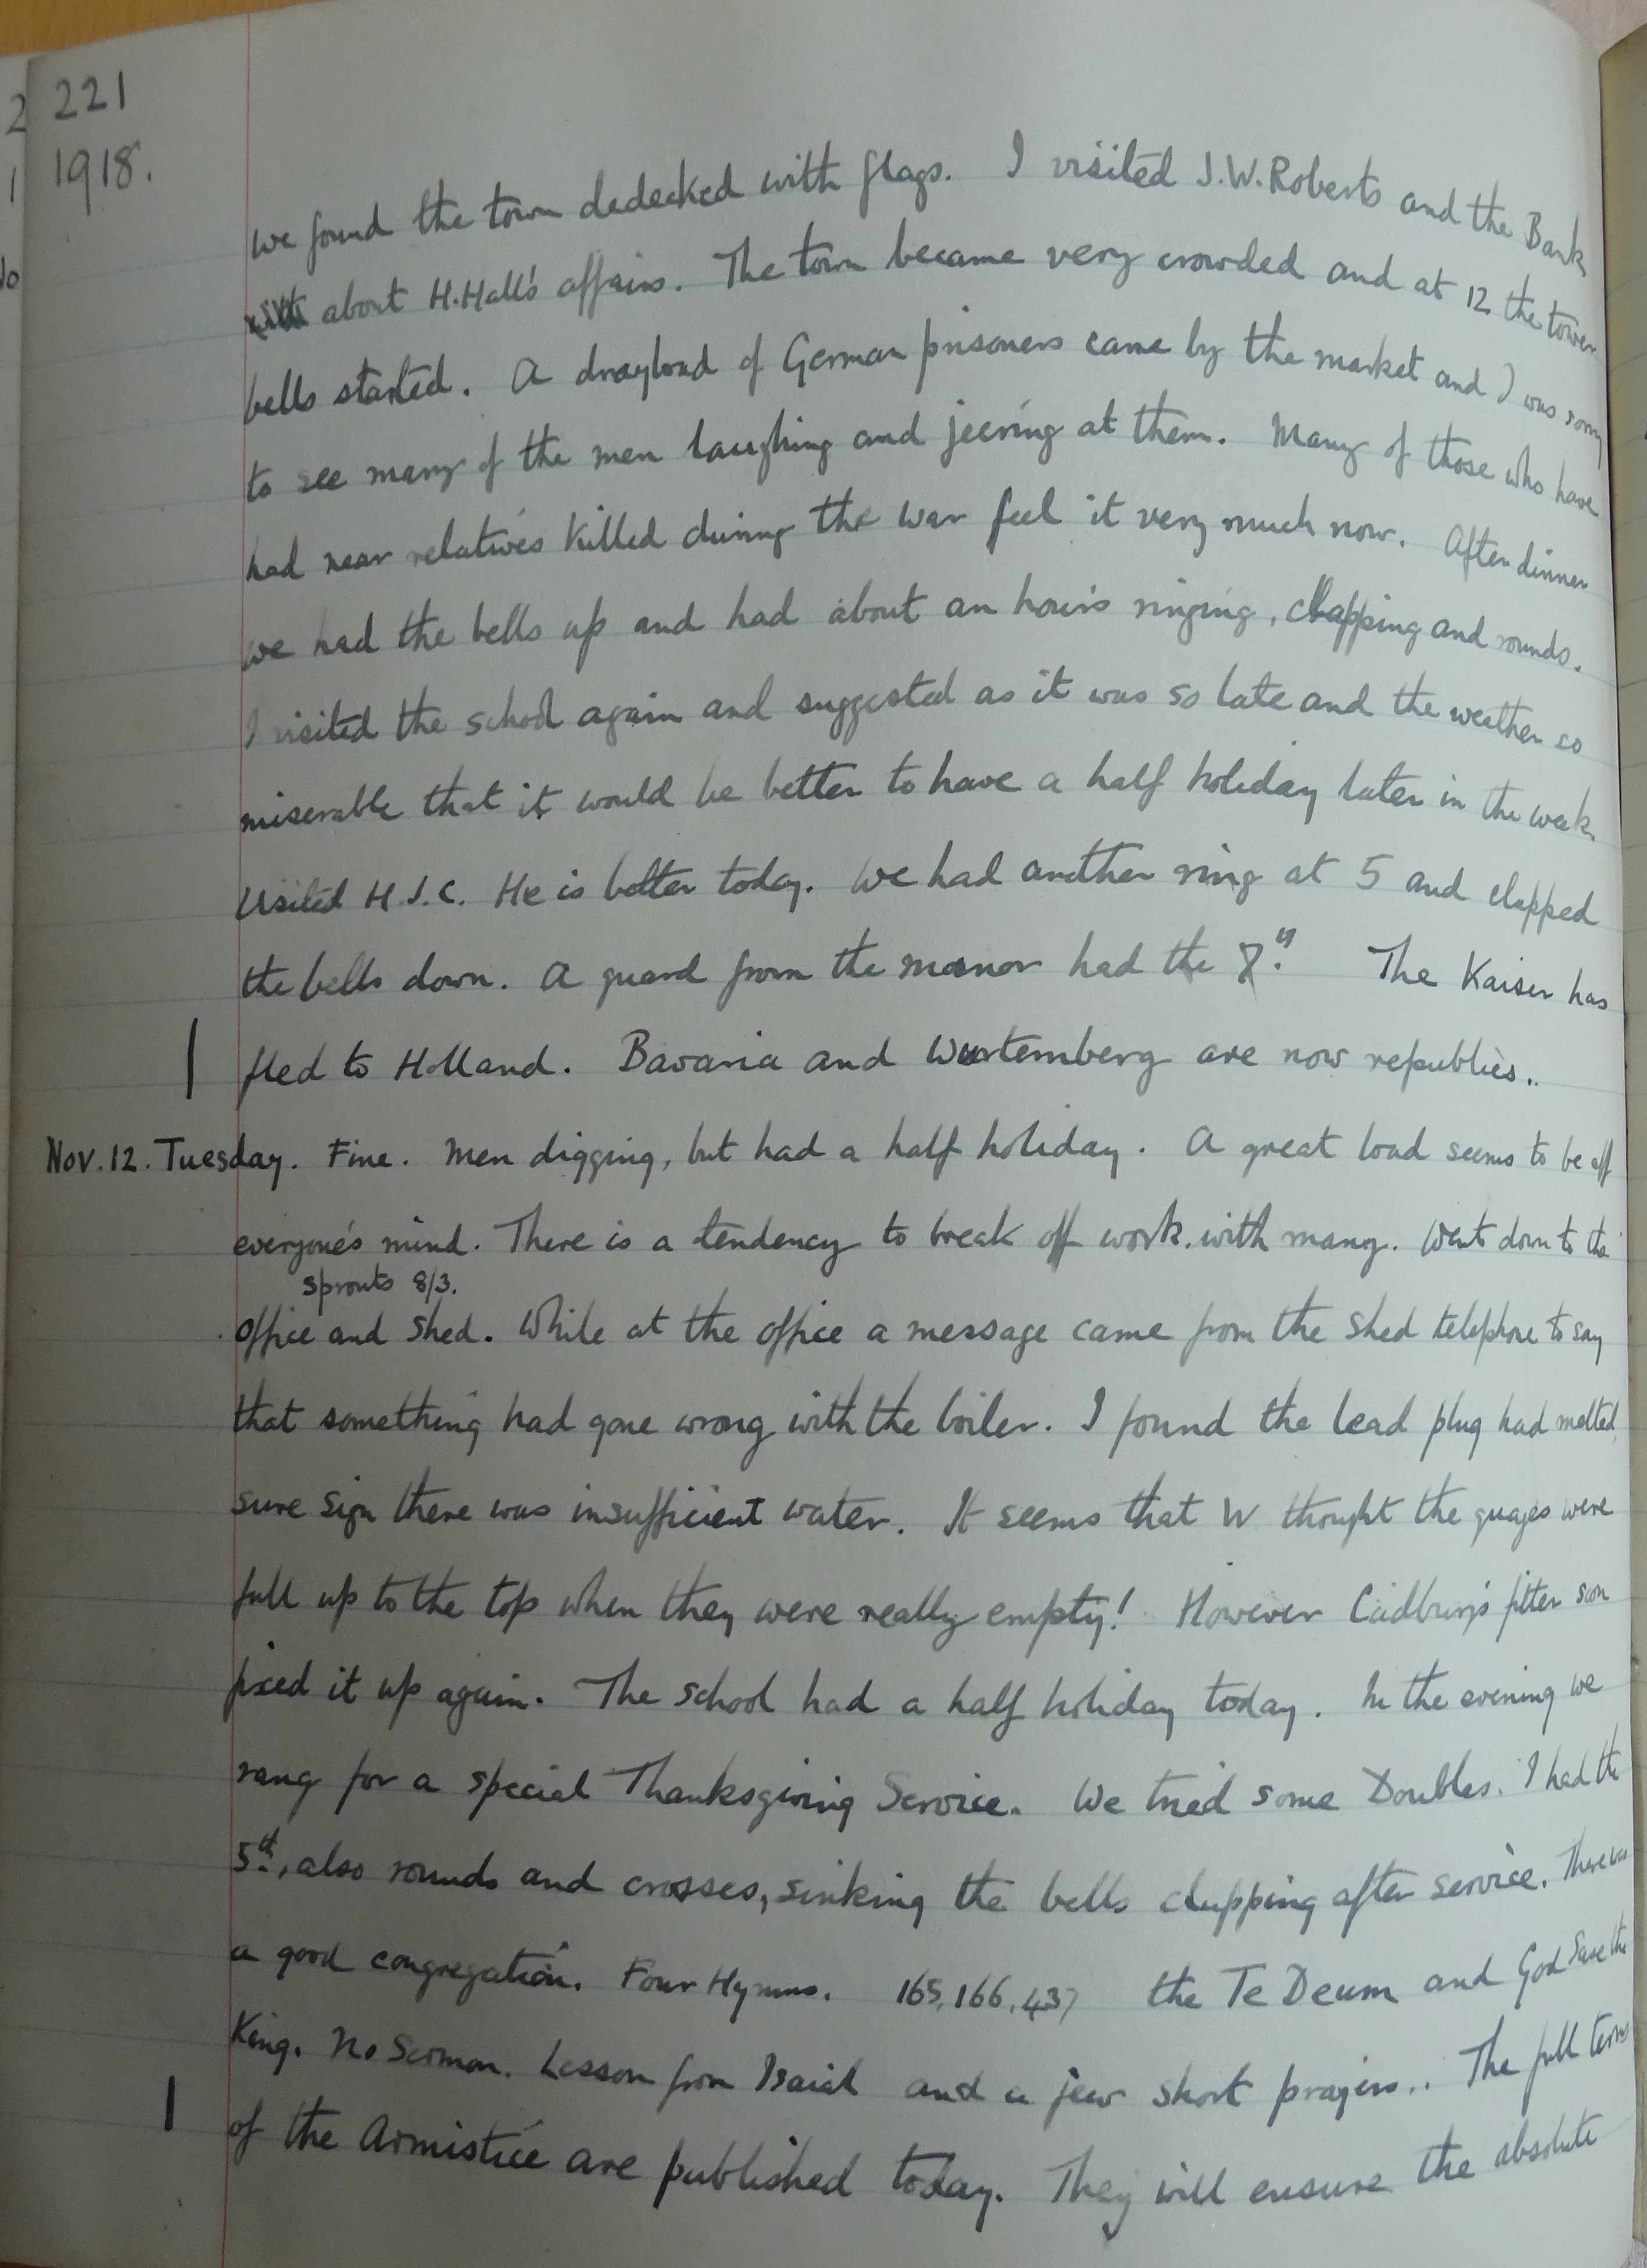 221
1918.
we found the town dedecked with flags. I visited J.W. Roberts and the Bank
about H. Hall's affairs. The town became very crowded and at 12 the tower
bells started. A drayload of German prisoners came by the market and I was sorry
to see many of the men laughing and jeering at them. Many of those who have
had near relatives killed during the war feel it very much now. After dinner
we had the bells up and had about an hour's ringing, clapping and rounds.
I visited the school again and suggested as it was so late and the weather so
miserable that it would be better to have a half holiday later in the week.
Visited H.J.C. He is better today. We had another ring at 5 and clapped
the bells down. A guard from the manor had the 7th. The Kaiser has
fled to Holland. Bavaria and Wurtemberg are now republics..
Nov. 12. Tuesday. Fine. Men digging, but had a half holiday. A great load seems to be off
everyone's mind. There is a tendency to break off work with many. Went down to the
sprouts 8/3.
office and shed. While at the office a message came from the shed telephone to say
that something had gone wrong with the boiler. I found the lead plug had melted,
sure sign there was insufficient water. It seems that W thought the guages were
full up to the top when they were really empty! However Cadbury's fitter soon
fixed it up again. The school had a half holiday today. In the evening we
rang for a special Thanksgiving Service. We tried some Doubles. I had the
5th, also rounds and crosses, sinking the bells clapping after service. There was
a good congregation. Four Hymns. 165, 166, 437 the Te Deum and God Save the
King. No Sermon. Lesson from Isaiah and a few short prayers.. The full terms
of the Armistice are published today. They will ensure the absolute